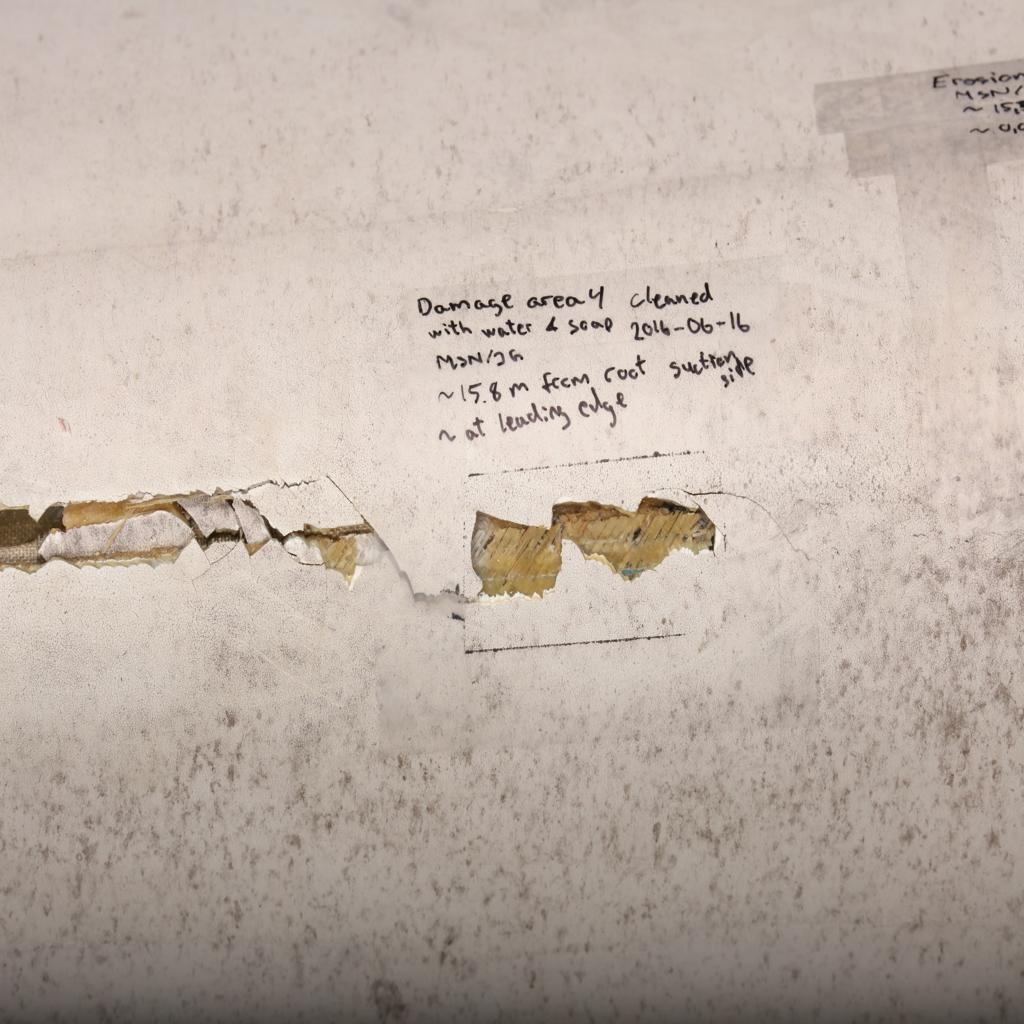 Erosion
MSN/
~ 15,
~ 0,0
Damage area 4 cleaned
with water & soap 2016-06-16
MSN/JG
~15.8 m from root suction side
~ at leading edge